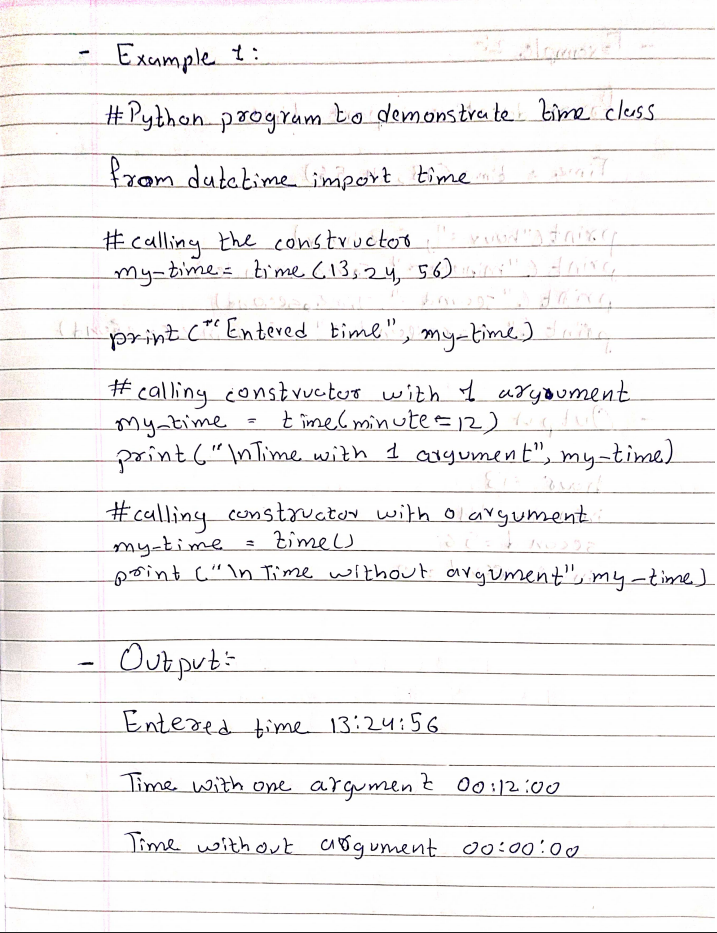 - Example 1:
#Python program to demonstrate time class
from datetime import time
# calling the constructor
my-time = time (13, 24, 56)
print ("Entered time", my-time)
# calling constructor with 1 argument
my-time = time(minute = 12)
print ("\nTime with 1 argument", my-time)
#calling constructor with 0 argument
my-time = time()
print ("\n Time without argument", my-time)
- Output:-
Entered time 13:24:56
Time with one argument 00:12:00
Time without argument 00:00:00